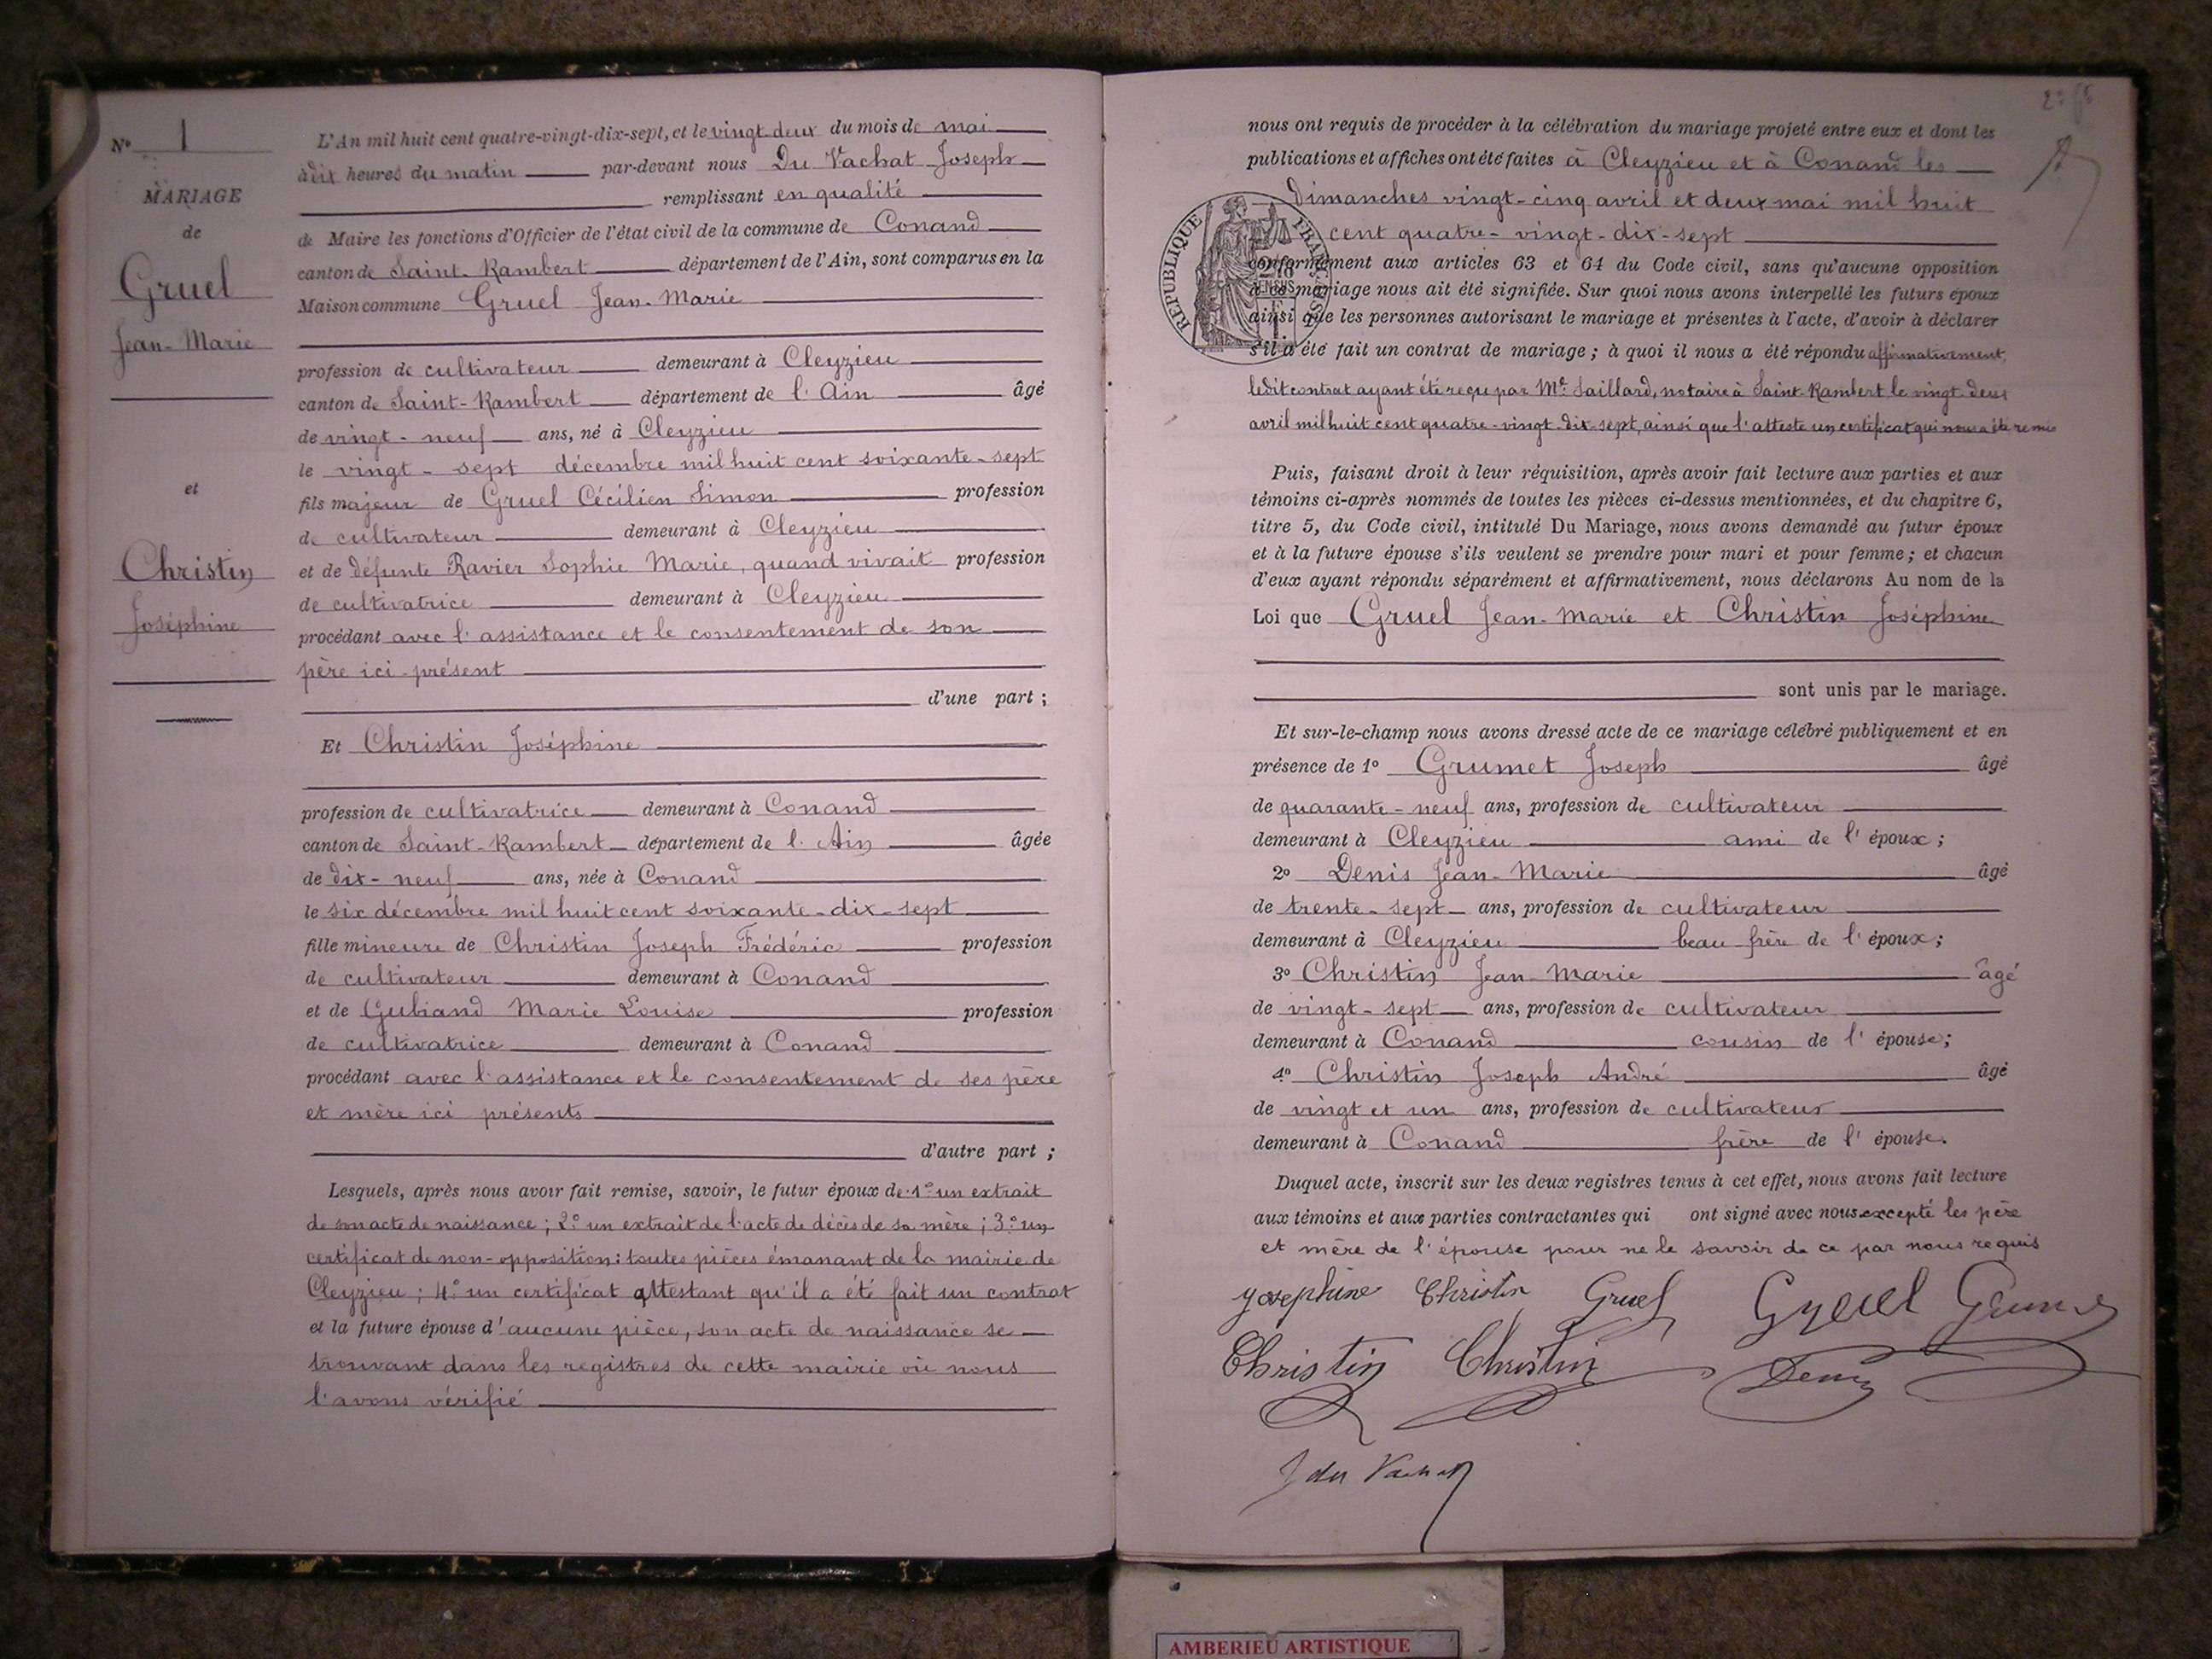 N° 1
MARIAGE
de
Gruel
Jean-Marie
et
Christin
Joséphine
L'An mil huit cent quatre-vingt-dix-sept, et le vingt-deux du mois de mai
à dix heures du matin par-devant nous Du Vachat Joseph
remplissant en qualité
de Maire les fonctions d'Officier de l'état civil de la commune de Conand
canton de Saint-Rambert département de l'Ain, sont comparus en la
Maison commune Gruel Jean-Marie
profession de cultivateur demeurant à Cleyzieu
canton de Saint-Rambert département de l'Ain âgé
de vingt-neuf ans, né à Cleyzieu
le vingt-sept décembre mil huit cent soixante-sept
fils majeur de Gruel Cécilien Simon profession
de cultivateur demeurant à Cleyzieu
et de défunte Ravier Sophie Marie, quand vivait profession
de cultivatrice demeurant à Cleyzieu
procédant avec l'assistance et le consentement de son
père ici présent
d'une part ;
Et Christin Joséphine
profession de cultivatrice demeurant à Conand
canton de Saint-Rambert département de l'Ain âgée
de dix-neuf ans, née à Conand
le six décembre mil huit cent soixante-dix-sept
fille mineure de Christin Joseph Frédéric profession
de cultivateur demeurant à Conand
et de Gubiand Marie Louise profession
de cultivatrice demeurant à Conand
procédant avec l'assistance et le consentement de ses père
et mère ici présents
d'autre part ;
Lesquels, après nous avoir fait remise, savoir, le futur époux de 1° un extrait
de son acte de naissance ; 2° un extrait de l'acte de décès de sa mère ; 3° un
certificat de non-opposition : toutes pièces émanant de la mairie de
Cleyzieu ; 4° un certificat attestant qu'il a été fait un contrat
et la future épouse d'aucune pièce, son acte de naissance se
trouvant dans les registres de cette mairie où nous
l'avons vérifié
nous ont requis de procéder à la célébration du mariage projeté entre eux et dont les
publications et affiches ont été faites à Cleyzieu et à Conand les
Dimanches vingt-cinq avril et deux mai mil huit
cent quatre-vingt-dix-sept
REPUBLIQUE FRANÇAISE
conformément aux articles 63 et 64 du Code civil, sans qu'aucune opposition
à ce mariage nous ait été signifiée. Sur quoi nous avons interpellé les futurs époux
ainsi que les personnes autorisant le mariage et présentes à l'acte, d'avoir à déclarer
s'il a été fait un contrat de mariage ; à quoi il nous a été répondu affirmativement,
ledit contrat ayant été reçu par Me Saillard, notaire à Saint-Rambert le vingt-deux
avril mil huit cent quatre-vingt-dix-sept, ainsi que l'atteste un certificat qui nous a été remis
Puis, faisant droit à leur réquisition, après avoir fait lecture aux parties et aux
témoins ci-après nommés de toutes les pièces ci-dessus mentionnées, et du chapitre 6,
titre 5, du Code civil, intitulé Du Mariage, nous avons demandé au futur époux
et à la future épouse s'ils veulent se prendre pour mari et pour femme ; et chacun
d'eux ayant répondu séparément et affirmativement, nous déclarons Au nom de la
Loi que Gruel Jean-Marie et Christin Joséphine
sont unis par le mariage.
Et sur-le-champ nous avons dressé acte de ce mariage célébré publiquement et en
présence de 1° Grumet Joseph âgé
de quarante-neuf ans, profession de cultivateur
demeurant à Cleyzieu ami de l'époux ;
2° Denis Jean-Marie âgé
de trente-sept ans, profession de cultivateur
demeurant à Cleyzieu beau frère de l'époux ;
3° Christin Jean-Marie âgé
de vingt-sept ans, profession de cultivateur
demeurant à Conand cousin de l'épouse ;
4° Christin Joseph André âgé
de vingt et un ans, profession de cultivateur
demeurant à Conand frère de l'épouse.
Duquel acte, inscrit sur les deux registres tenus à cet effet, nous avons fait lecture
aux témoins et aux parties contractantes qui ont signé avec nous excepté les père
et mère de l'épouse pour ne le savoir de ce par nous requis
Josephine Christin Gruel Gruel
Christin Christin Denis
J du Vachat
AMBERIEU ARTISTIQUE